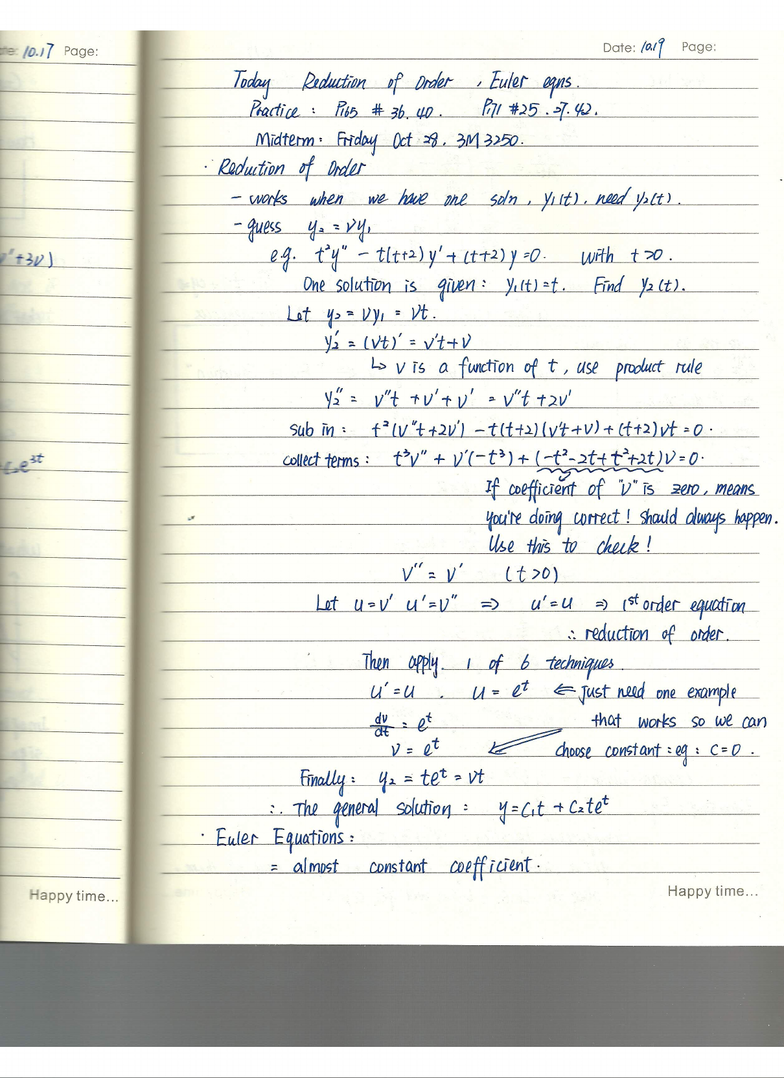 te: 10.17 Page:
v'+3v)
C₂e^3t
Happy time...
Date: 10.19 Page:
Today Reduction of Order , Euler eqns.
Practice : P165 # 36. 40. P171 #25 .27. 42.
Midterm: Friday Oct 28. 3M 3250.
· Reduction of Order
- works when we have one soln , y₁(t) , need y₂(t).
- guess y₂ = vy₁
e.g. t²y'' - t(t+2)y' + (t+2)y =0. with t>0.
One solution is given: y₁(t)=t. Find y₂(t).
Let y₂ = vy₁ = vt.
y₂' = (vt)' = v't+v
↳ v is a function of t, use product rule
y₂'' = v''t +v'+v' = v''t +2v'
sub in : t²(v''t+2v') -t(t+2)(v't+v)+(t+2)vt =0.
collect terms : t³v'' + v'(-t³) + (-t²-2t+t²+2t)v=0.
If coefficient of "v" is zero, means
you're doing correct! should always happen.
Use this to check!
v'' = v' (t>0)
Let u=v' u'=v'' ⇒ u'=u ⇒ 1st order equation
∴ reduction of order.
Then apply 1 of 6 techniques.
u'=u . u= e^t ⇐ just need one example
dv/dt = e^t that works so we can
v = e^t choose constant : eg : C=0 .
Finally: y₂ = te^t = vt
∴ The general solution : y=C₁t + C₂te^t
· Euler Equations :
= almost constant coefficient.
Happy time...